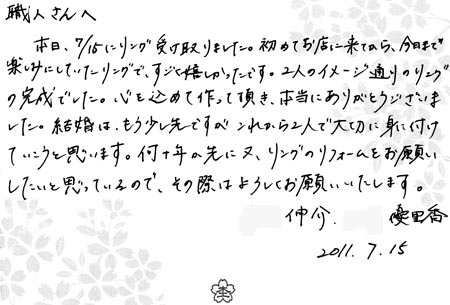 職人さんへ
本日、7/15にリング受け取りました。初めてお店に来てから、今日まで
楽しみにしていたリングで、すごく嬉しかったです。2人のイメージ通りのリング
の完成でした。心を込めて作って頂き、本当にありがとうございま
した。結婚は、もう少し先ですが これから2人で大切に身に付け
ていこうと思います。何十年か先に又、リングのリフォームをお願い
したいと思っているので、その際はよろしくお願いいたします。
仲介. 優里香
2011.7.15